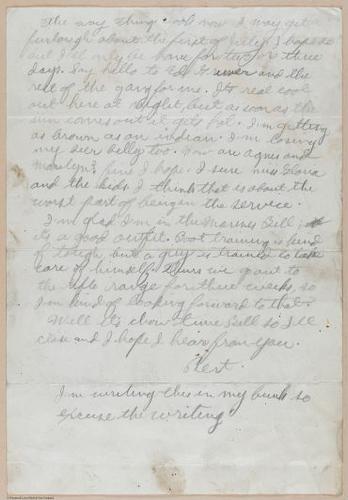 the way thing look now I may get
furlough about the first of July I hope so
but I'll only be home for two or three
days. Say hello to Ed, and the
rest of the gang for me. It's real cool
out here at night, but as soon as the
sun comes out it gets hot. I'm getting
as brown as an indian. I'm losing
my beer belly too. How are Agnes and
Marilyn? fine I hope. I sure miss
and the kids I think that is about the
worst part of being in the service.
I'm glad I'm in the Marines Bill,
its a good outfit. Boot training is kind
of tough, but a guy is trained to take
care of himself. we go out to
the rifle range for three weeks, so
I'm kind of looking forward to that.
Well it's chow time Bill so I'll
close and I hope I hear from you.
Bert.
I'm writing this in my bunk so
excuse the writing